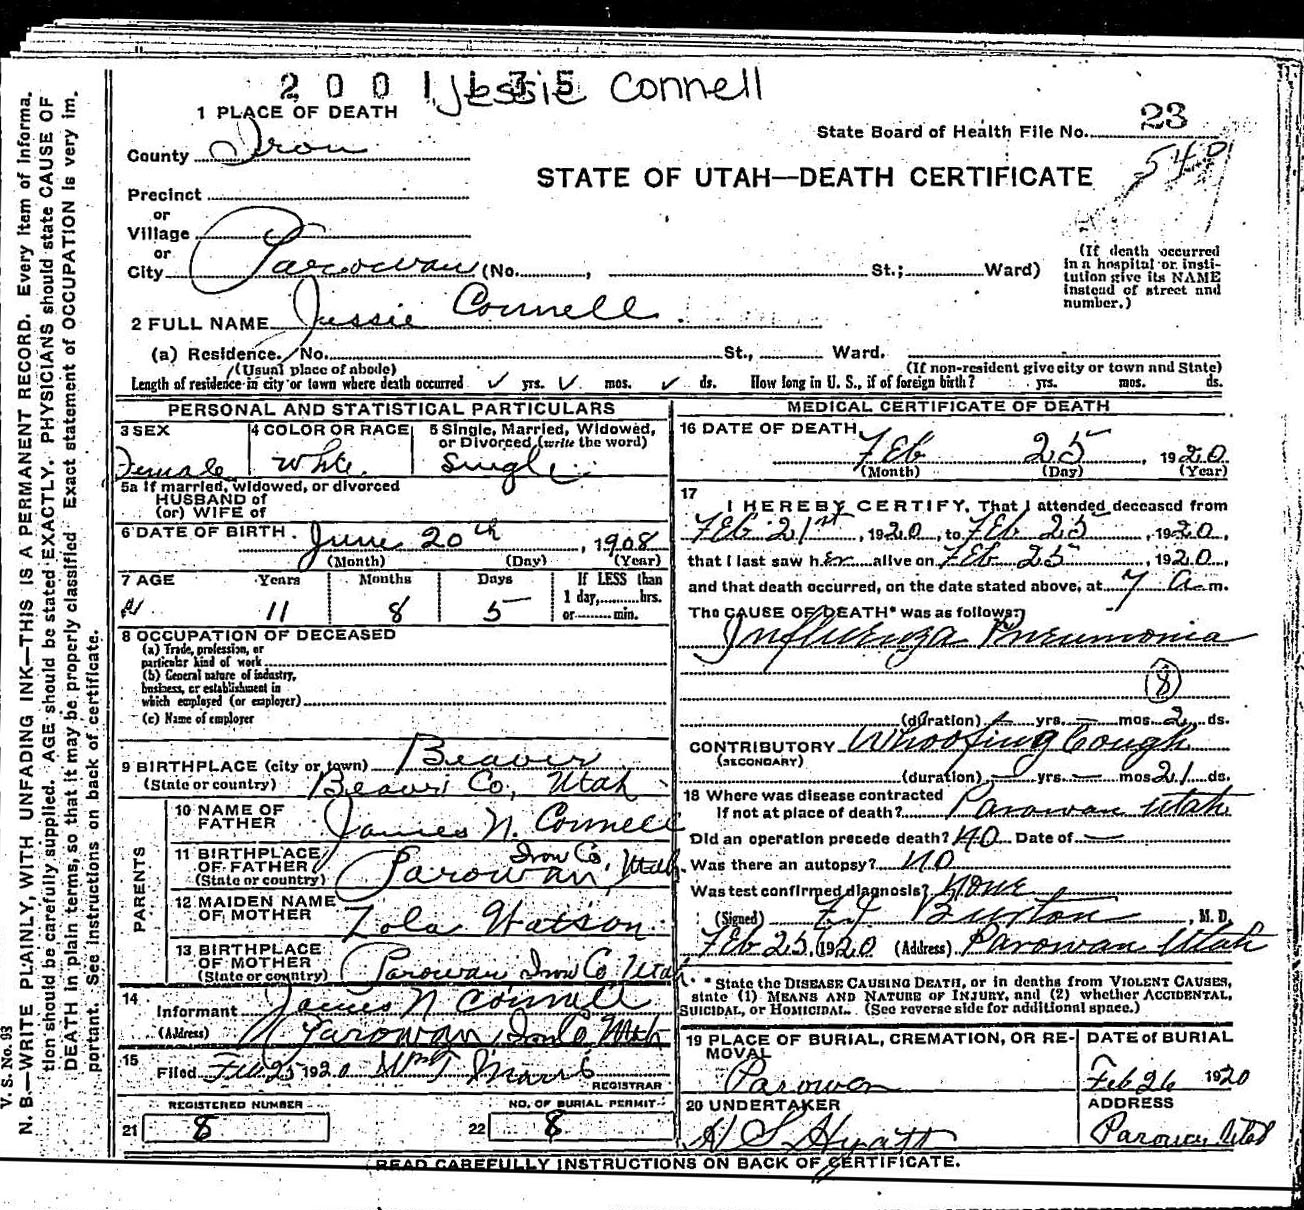 2 0 0 1 1 3 5 Jessie Connell
1 PLACE OF DEATH
State Board of Health File No. 23
County Iron
540
STATE OF UTAH—DEATH CERTIFICATE
Precinct
or
Village
or
City Parowan (No. , St.; Ward)
(If death occurred in a hospital or institution give its NAME instead of street and number.)
2 FULL NAME Jessie Connell
(a) Residence. No. St., Ward.
(Usual place of abode) (If non-resident give city or town and State)
Length of residence in city or town where death occurred ✓ yrs. ✓ mos. ✓ ds. How long in U. S., if of foreign birth? yrs. mos. ds.
PERSONAL AND STATISTICAL PARTICULARS
3 SEX
Female
4 COLOR OR RACE
White
5 Single, Married, Widowed,
or Divorced (write the word)
Single
5a If married, widowed, or divorced
HUSBAND of
(or) WIFE of
6 DATE OF BIRTH June 20th, 1908
(Month) (Day) (Year)
7 AGE Years Months Days If LESS than
1 day, hrs.
11 8 5 or min.
8 OCCUPATION OF DECEASED
(a) Trade, profession, or
particular kind of work
(b) General nature of industry,
business, or establishment in
which employed (or employer)
(c) Name of employer
9 BIRTHPLACE (city or town) Beaver
(State or country) Beaver Co, Utah
PARENTS
10 NAME OF
FATHER James N. Connell
11 BIRTHPLACE
OF FATHER
(State or country) Parowan, Iron Co, Utah
12 MAIDEN NAME
OF MOTHER Zola Watson
13 BIRTHPLACE
OF MOTHER
(State or country) Parowan Iron Co Utah
14
Informant James N Connell
(Address) Parowan Iron Co Utah
15
Filed Feb 25 1920 Wm T Morris
REGISTRAR
REGISTERED NUMBER
21 8
NO. OF BURIAL PERMIT
22 8
MEDICAL CERTIFICATE OF DEATH
16 DATE OF DEATH
Feb 25, 1920
(Month) (Day) (Year)
17
I HEREBY CERTIFY, That I attended deceased from
Feb 21st, 1920, to Feb 25, 1920,
that I last saw her alive on Feb 25, 1920,
and that death occurred, on the date stated above, at 7 a m.
The CAUSE OF DEATH* was as follows:
Influenza Pneumonia
8
(duration) — yrs. — mos. 2 ds.
CONTRIBUTORY Whoofing Cough
(SECONDARY)
(duration) — yrs. — mos. 21 ds.
18 Where was disease contracted
If not at place of death? Parowan Utah
Did an operation precede death? NO Date of —
Was there an autopsy? NO
Was test confirmed diagnosis? None
(Signed) Burton, M. D.
Feb 25, 1920 (Address) Parowan Utah
* State the DISEASE CAUSING DEATH, or in deaths from VIOLENT CAUSES,
state (1) MEANS AND NATURE OF INJURY, and (2) whether ACCIDENTAL,
SUICIDAL, or HOMICIDAL. (See reverse side for additional space.)
19 PLACE OF BURIAL, CREMATION, OR RE-
MOVAL
Parowan
DATE of BURIAL
Feb 26 1920
20 UNDERTAKER
H S Hyatt
ADDRESS
Parowan Utah
READ CAREFULLY INSTRUCTIONS ON BACK OF CERTIFICATE.
V. S. No. 93
N. B.—WRITE PLAINLY, WITH UNFADING INK—THIS IS A PERMANENT RECORD. Every item of informa.
tion should be carefully supplied. AGE should be stated EXACTLY. PHYSICIANS should state CAUSE OF
DEATH in plain terms, so that it may be properly classified. Exact statement of OCCUPATION is very im.
portant. See instructions on back of certificate.